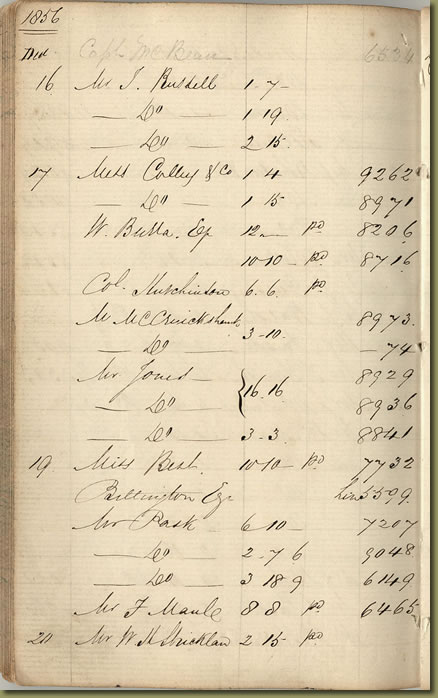 1856
Capt. McBean 6534
16 Mr J. Russell 1 - 7 -
— Do — 1 19.
— Do — 2 15.
17 Mess Colley & Co 1 4 9262
— Do — 1 15 8971
W. Butta. Esq 12 — pd 8206
10-10 — pd 8716
Col. Hutchinson 6. 6. pd
8973.
— Do 3 - 10. — 74
Mr Jones — 8929
— Do — 16. 16. 8936
— Do — 3 - 3. 8841
19 Miss Best. 10-10 — pd 7732
Billington Esqr 5599.
Mr Pask 6 - 10 — 7207
— Do — 2 - 7 6 9048
— Do — 3 18 9 6149
Mr F Maule 8 8 pd 6465
20 Mr W H Stricklan 2 15 pd